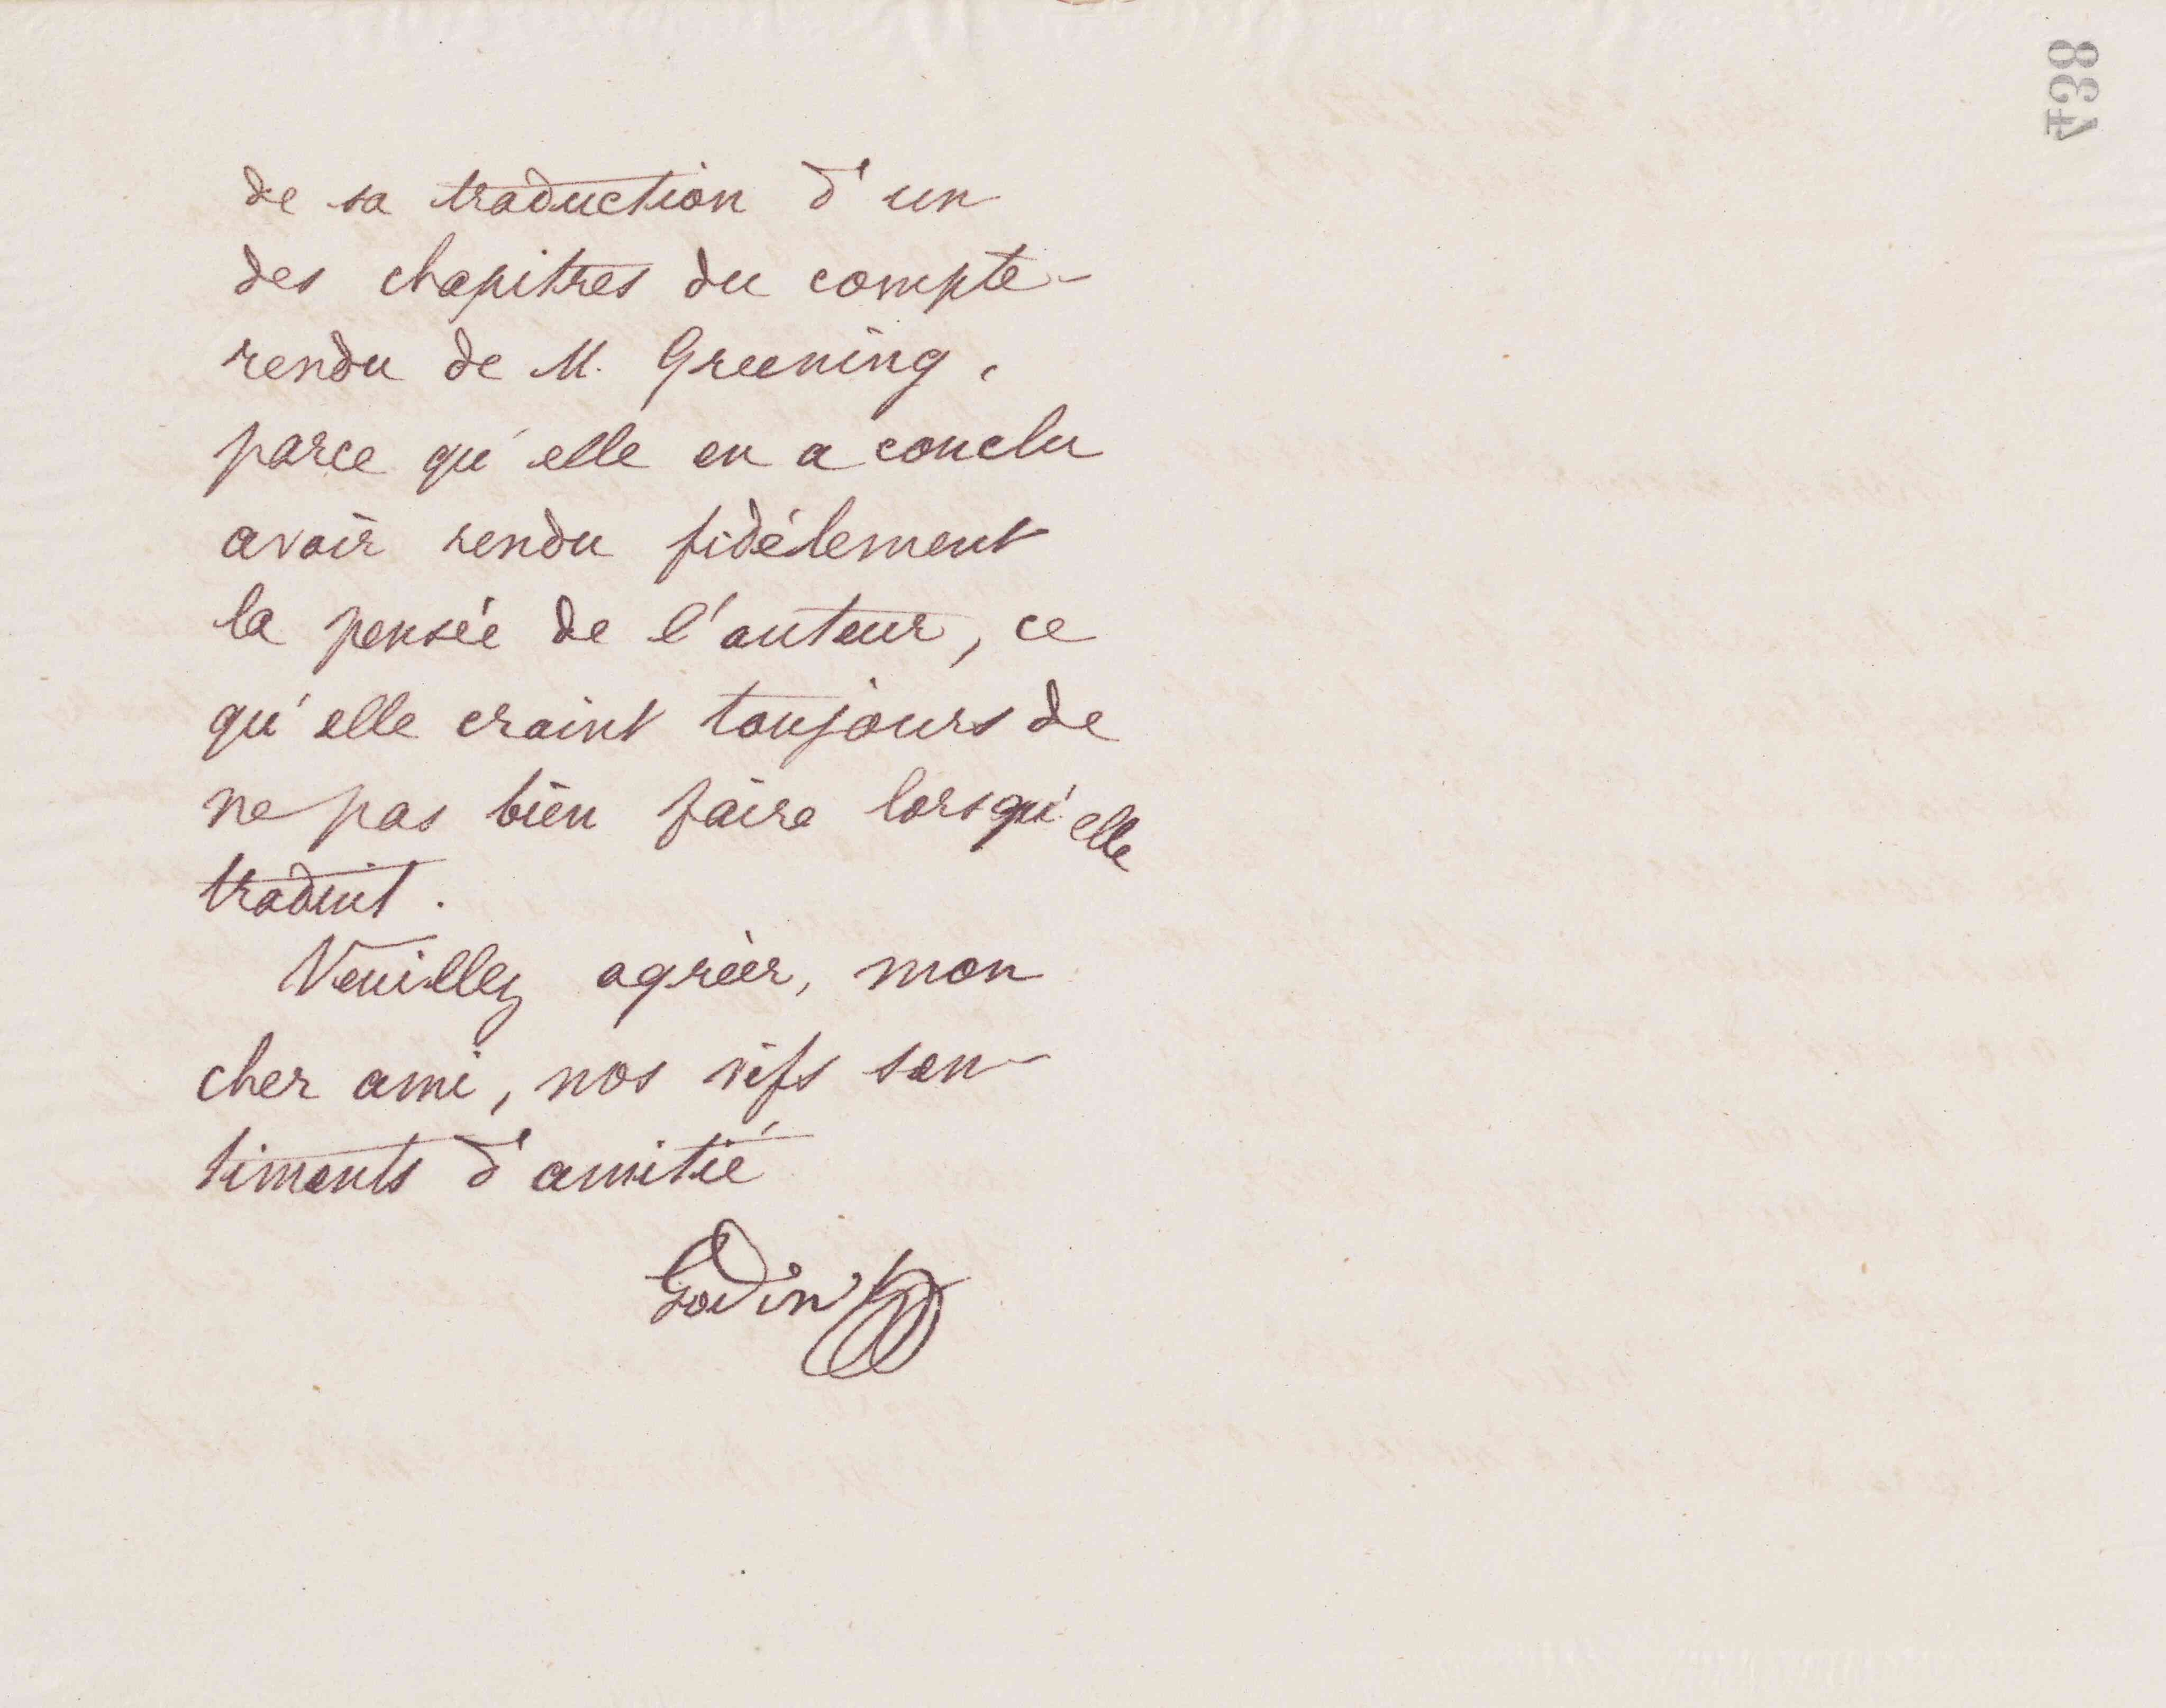 438
de sa traduction d'un
des chapitres du compte-
rendu de M. Greening,
parce qu'elle en a conclu
avoir rendu fidèlement
la pensée de l'auteur, ce
qu'elle craint toujours de
ne pas bien faire lorsqu'elle
traduit.
Veuillez agréer, mon
cher ami, nos vifs sen-
timents d'amitié
Godin